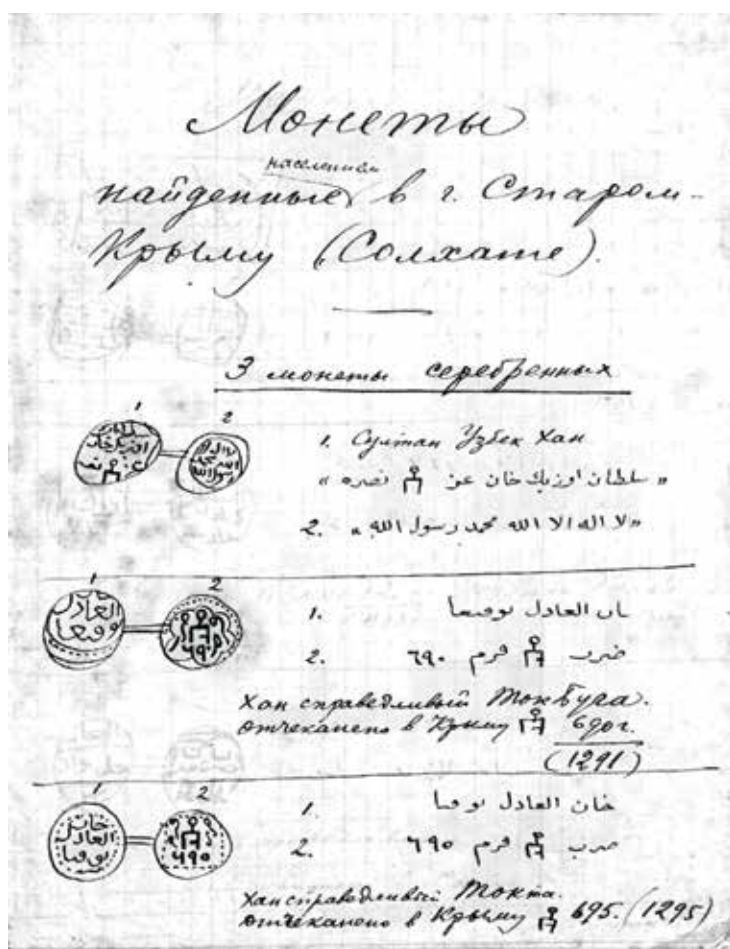 Монеты
населением
найденные в г. Старом-
Крыму (Солхате).
3 монеты серебренных
1 2
1. Султан Узбек Хан
« سلطان اوزبك خان عز نصره »
2. «لا اله الا الله محمد رسول الله»
1 2
1. ـان العادل توقتعا
2. ضرب قرم ٦٩٠
Хан справедливый Мокбуга.
отчеканено в Крыму 690 г.
(1291)
1 2
1. خان العادل توقتا
2. ضرب قرم ٦٩٥
Хан справедливый Мокта.
отчеканено в Крыму 695. (1295)